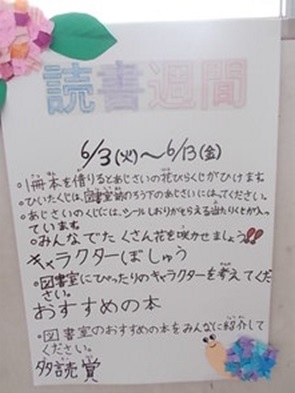 読書週間
6/3(火)～6/13(金)
○1冊本を借りるとあじさいの花びらくじがひけます。
○ひいたくじは、図書室前のろう下のあじさいにはってください。
○あじさいのくじには、シールしおりがもらえる当たりくじが入っ
ています。
○みんなでたくさん花を咲かせましょう!!
キャラクターぼしゅう
○図書室にぴったりのキャラクターを考えてくだ
さい。
おすすめの本
○図書室のおすすめの本をみんなに紹介して
ください。
多読賞